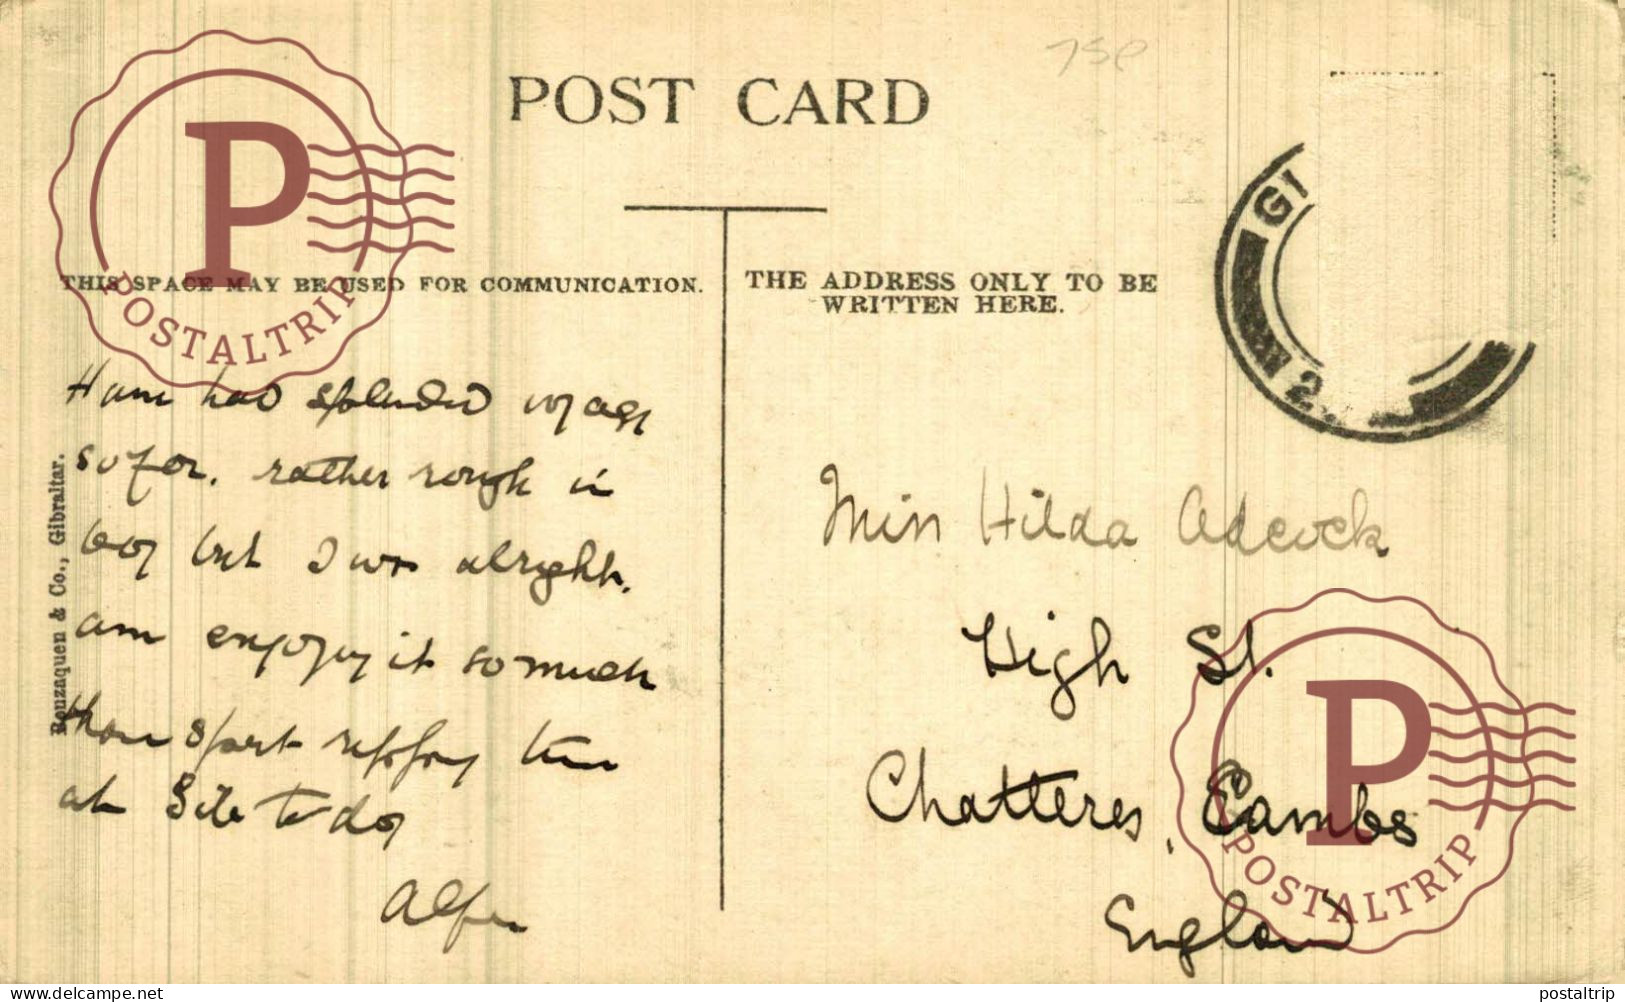 75p
POST CARD
GI
2
THIS SPACE MAY BE USED FOR COMMUNICATION.
THE ADDRESS ONLY TO BE
WRITTEN HERE.
Have had splendid voyage
so far. rather rough in
bay but I was alright.
am enjoying it so much
have spent ripping time
at Gib to day
Miss Hilda Adcock
High St.
Chatteres, Cambs
England
Benzaquen & Co., Gibraltar.
P
POSTALTRIP
P
POSTALTRIP
delcampe.net
postaltrip